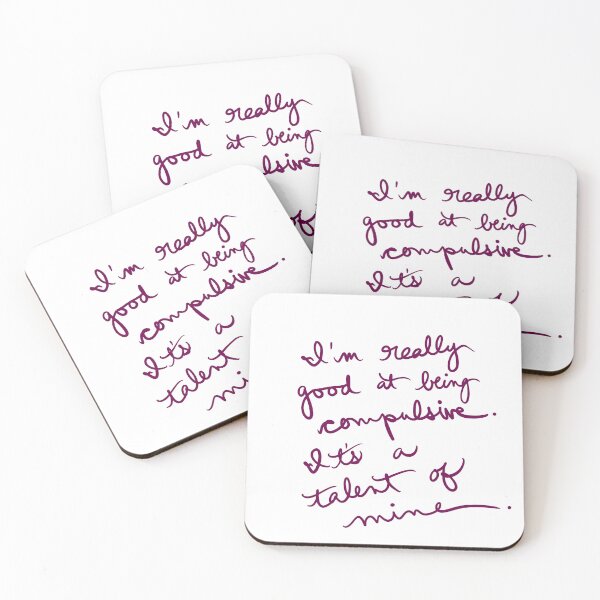 I'm really
good at being
I'm really
good at being
compulsive.
It's a
I'm really
good at being
compulsive.
It's a
talent
I'm really
good at being
compulsive.
It's a
talent of
mine.